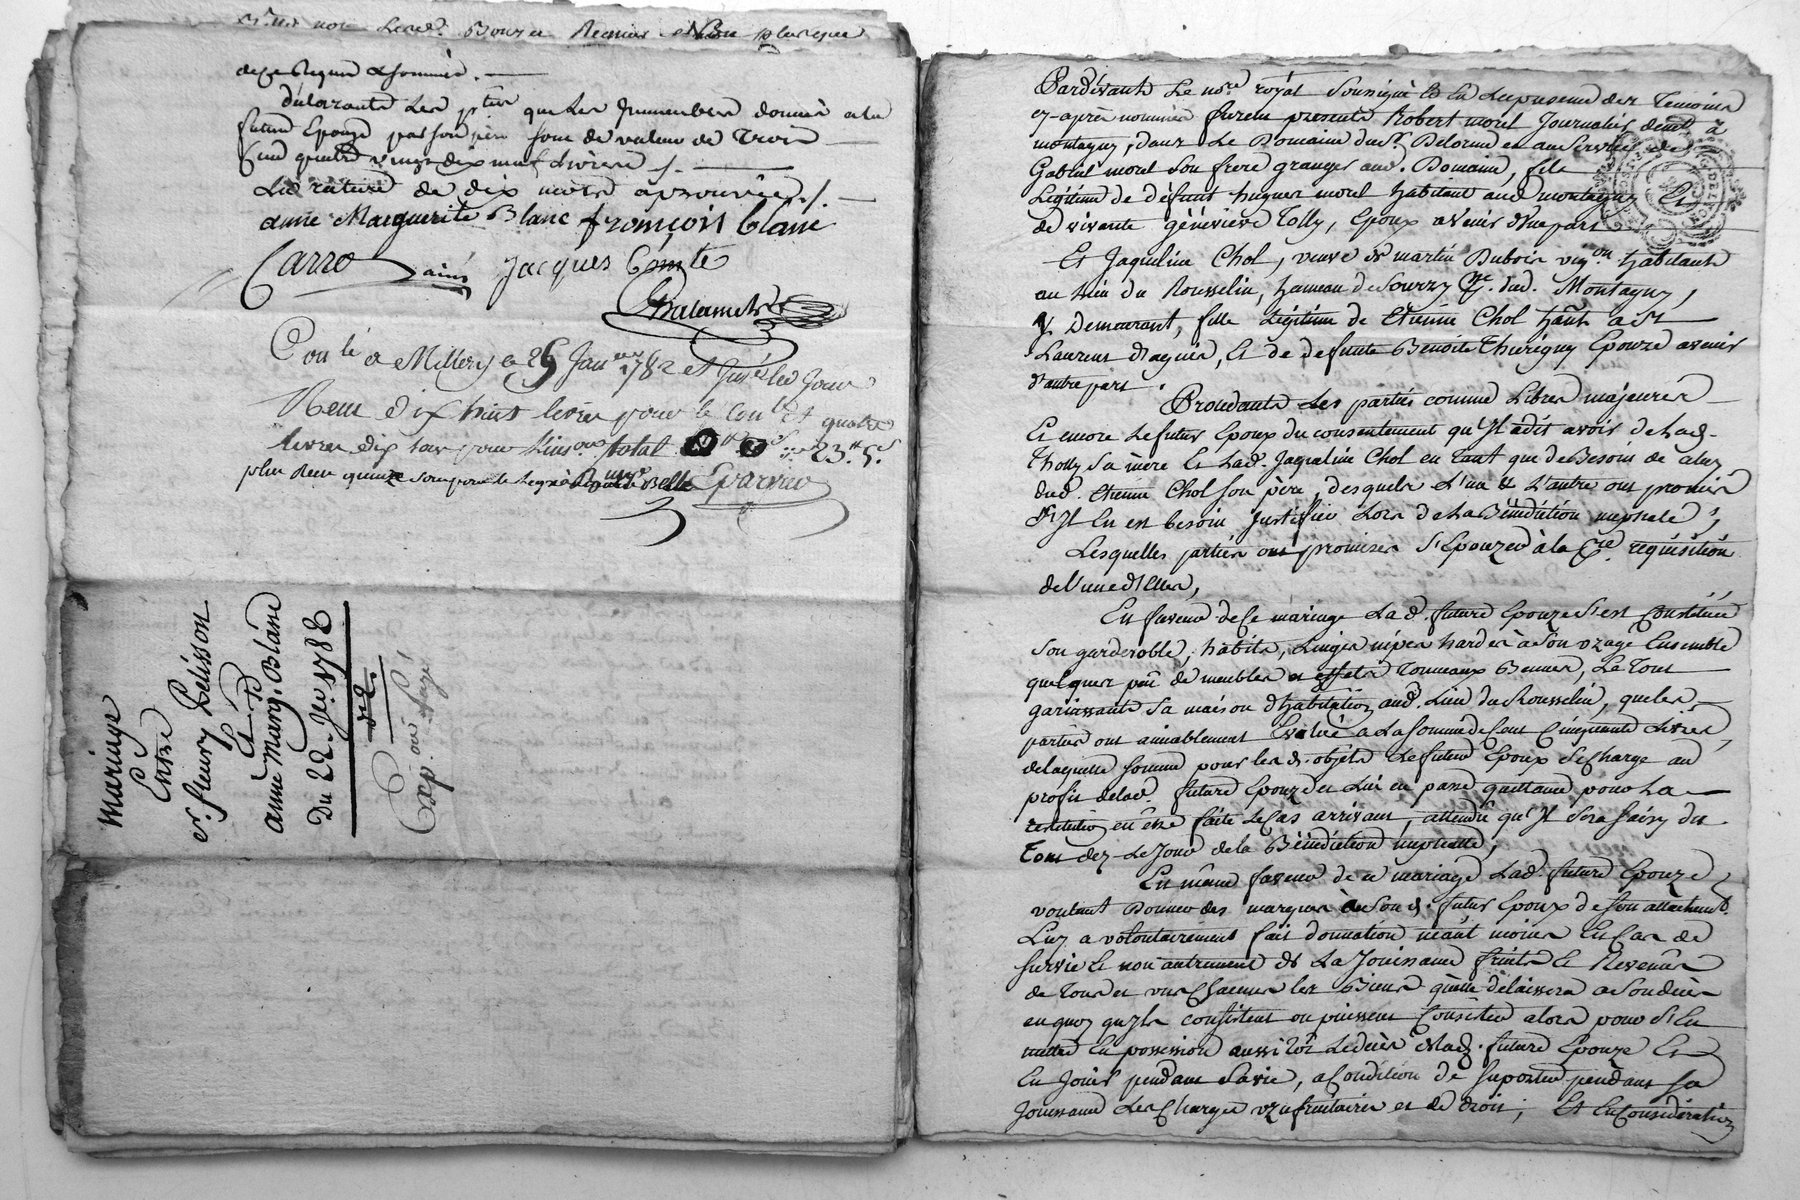 de ce Requis & sommés.
Déclarants Les pties que Les immeubles donnés a la
future Epouze par son père sont de valeur de Trois
Cent quatre vingt dix neuf Livres /.
La rature de dix mots approuvée /.
anne Marguerite Blanc françois blanc
Carro ainé Jacques Comte
Con lé a Millery le 25 Janer 1782 et
Reçu dix huit livres pour le Conle et quatre
livres dix sous pour l'insion total 23tt 5s
plus Reçu quinze sous pour le
Mariage
Entre
sr. fleury Pélisson
Et Dlle
anne Marg. Blanc
Du 22 Jer 1782
Exp. ou
Pardevant Le nore royal soussigné & En La presence des Temoins
cy-après nommés furent présents Robert morel Journalier demt à
montagny, dans Le Domaine du sr. Delorme en au service de
Gabriel morel son frere granger aud. Domaine, fils
Légitime de défunt hugues morel habitant aud montagny Et
de vivante géneviève Tolly, Epoux avenir d'une part
Et Jaqueline Chol, veuve de martin Dubois vigon habitante
au Lieu du Rousselin, hameau de Sourzy Psse. dud. Montagny,
y Demeurant, fille Légitime de Etienne Chol habt à St
Laurent d'agnis, Et de defunte Benoite Thurigny Epouze avenir
d'autre part.
Procedants Les parties comme Libres majeures
Et encore Le futur Epoux du consentement qu'Il a dit avoir de Lad.
Tholly sa mère Et Lad. Jaqueline Chol en Tant que de Besoin de celuy
dud. Etienne Chol son père, desquels L'un & L'autre ont promis
s'Il En est besoin Justifier Lors de La Bénédiction nuptiale,
Lesquelles parties ont promises s'Epouzer à la Pre réquisition
de L'une d'Elles,
En faveur de Ce mariage La d. future Epouze s'est Constituée
son garderoble, habits, Linges nipes hardes à son uzage Ensemble
quelques peu de meubles et effets Tonneaux Bennes, Le Tout
garnissant sa maison d'habitation aud. Lieu du Rousselin, que les
parties ont amiablement Evalué a La somme de Cent Cinquante Livres,
de laquelle somme pour les d. objets Le futur Epoux se Charge au
profit de lad. future Epouze et Lui en passe quittance pour La
restitution en être faite Le Cas arrivant, attendu qu'Il sera saisy du
Tout dez Le Jour de la Bénédiction nuptialle,
En même faveur de ce mariage Lad. future Epouze
voulant Donner des marques à son d. futur Epoux de son attachement
Luy a volontairement fait donnation néant moins En Cas de
survie Et non autrement de La Jouissance fruits Et Revenus
de Tous et uns Chacuns les Biens qu'elle délaissera a son décès
en quoy qu'Ils consistent ou puissent Consister alors pour s'En
mettre En possession aussitôt Le décès de lad. future Epouze Et
En Jouir pendant sa vie, a Condition de suporter pendant sa
Jouissance Les Charges uzufruitaires et de droit; Et En Considération